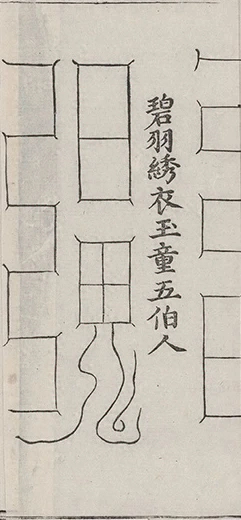 碧羽綉衣玉童五伯人